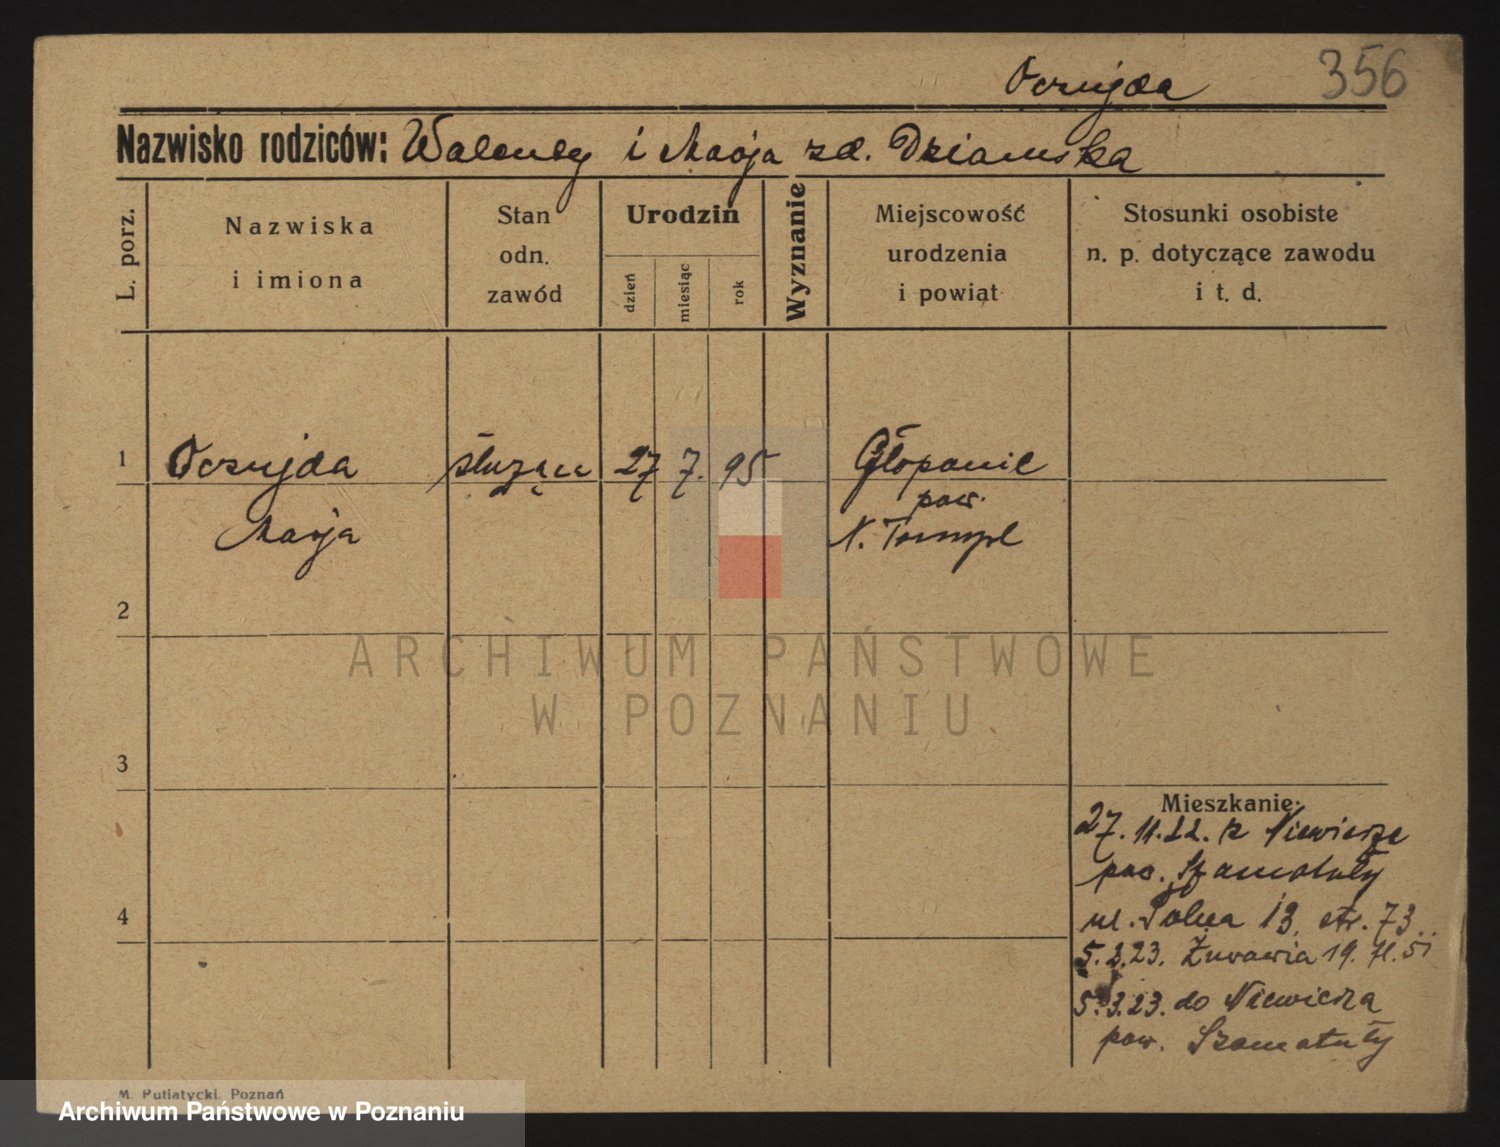 356
Oczujda
Nazwisko rodziców: Walenty i Marja zd. Dziamska
L. porz.
Nazwiska
i imiona
Stan
odn.
zawód
Urodzin
dzień
miesiąc
rok
Wyznanie
Miejscowość
urodzenia
i powiat
Stosunki osobiste
n. p. dotyczące zawodu
i t. d.
1 Oczujda służąca 27 7. 95
pow.
Marja N. Tomyśl
2
ARCHIWUM PAŃSTWOWE
W POZNANIU
3
4
Mieszkanie:
27. 11. 22. z Niewierze
pow. Szamotuły
ul. Polna 13, str. 73
5. 2. 23. Żurawia 19.
5. 3. 23. do Niewierza
pow. Szamotuły
M. Putiatycki, Poznań
Archiwum Państwowe w Poznaniu